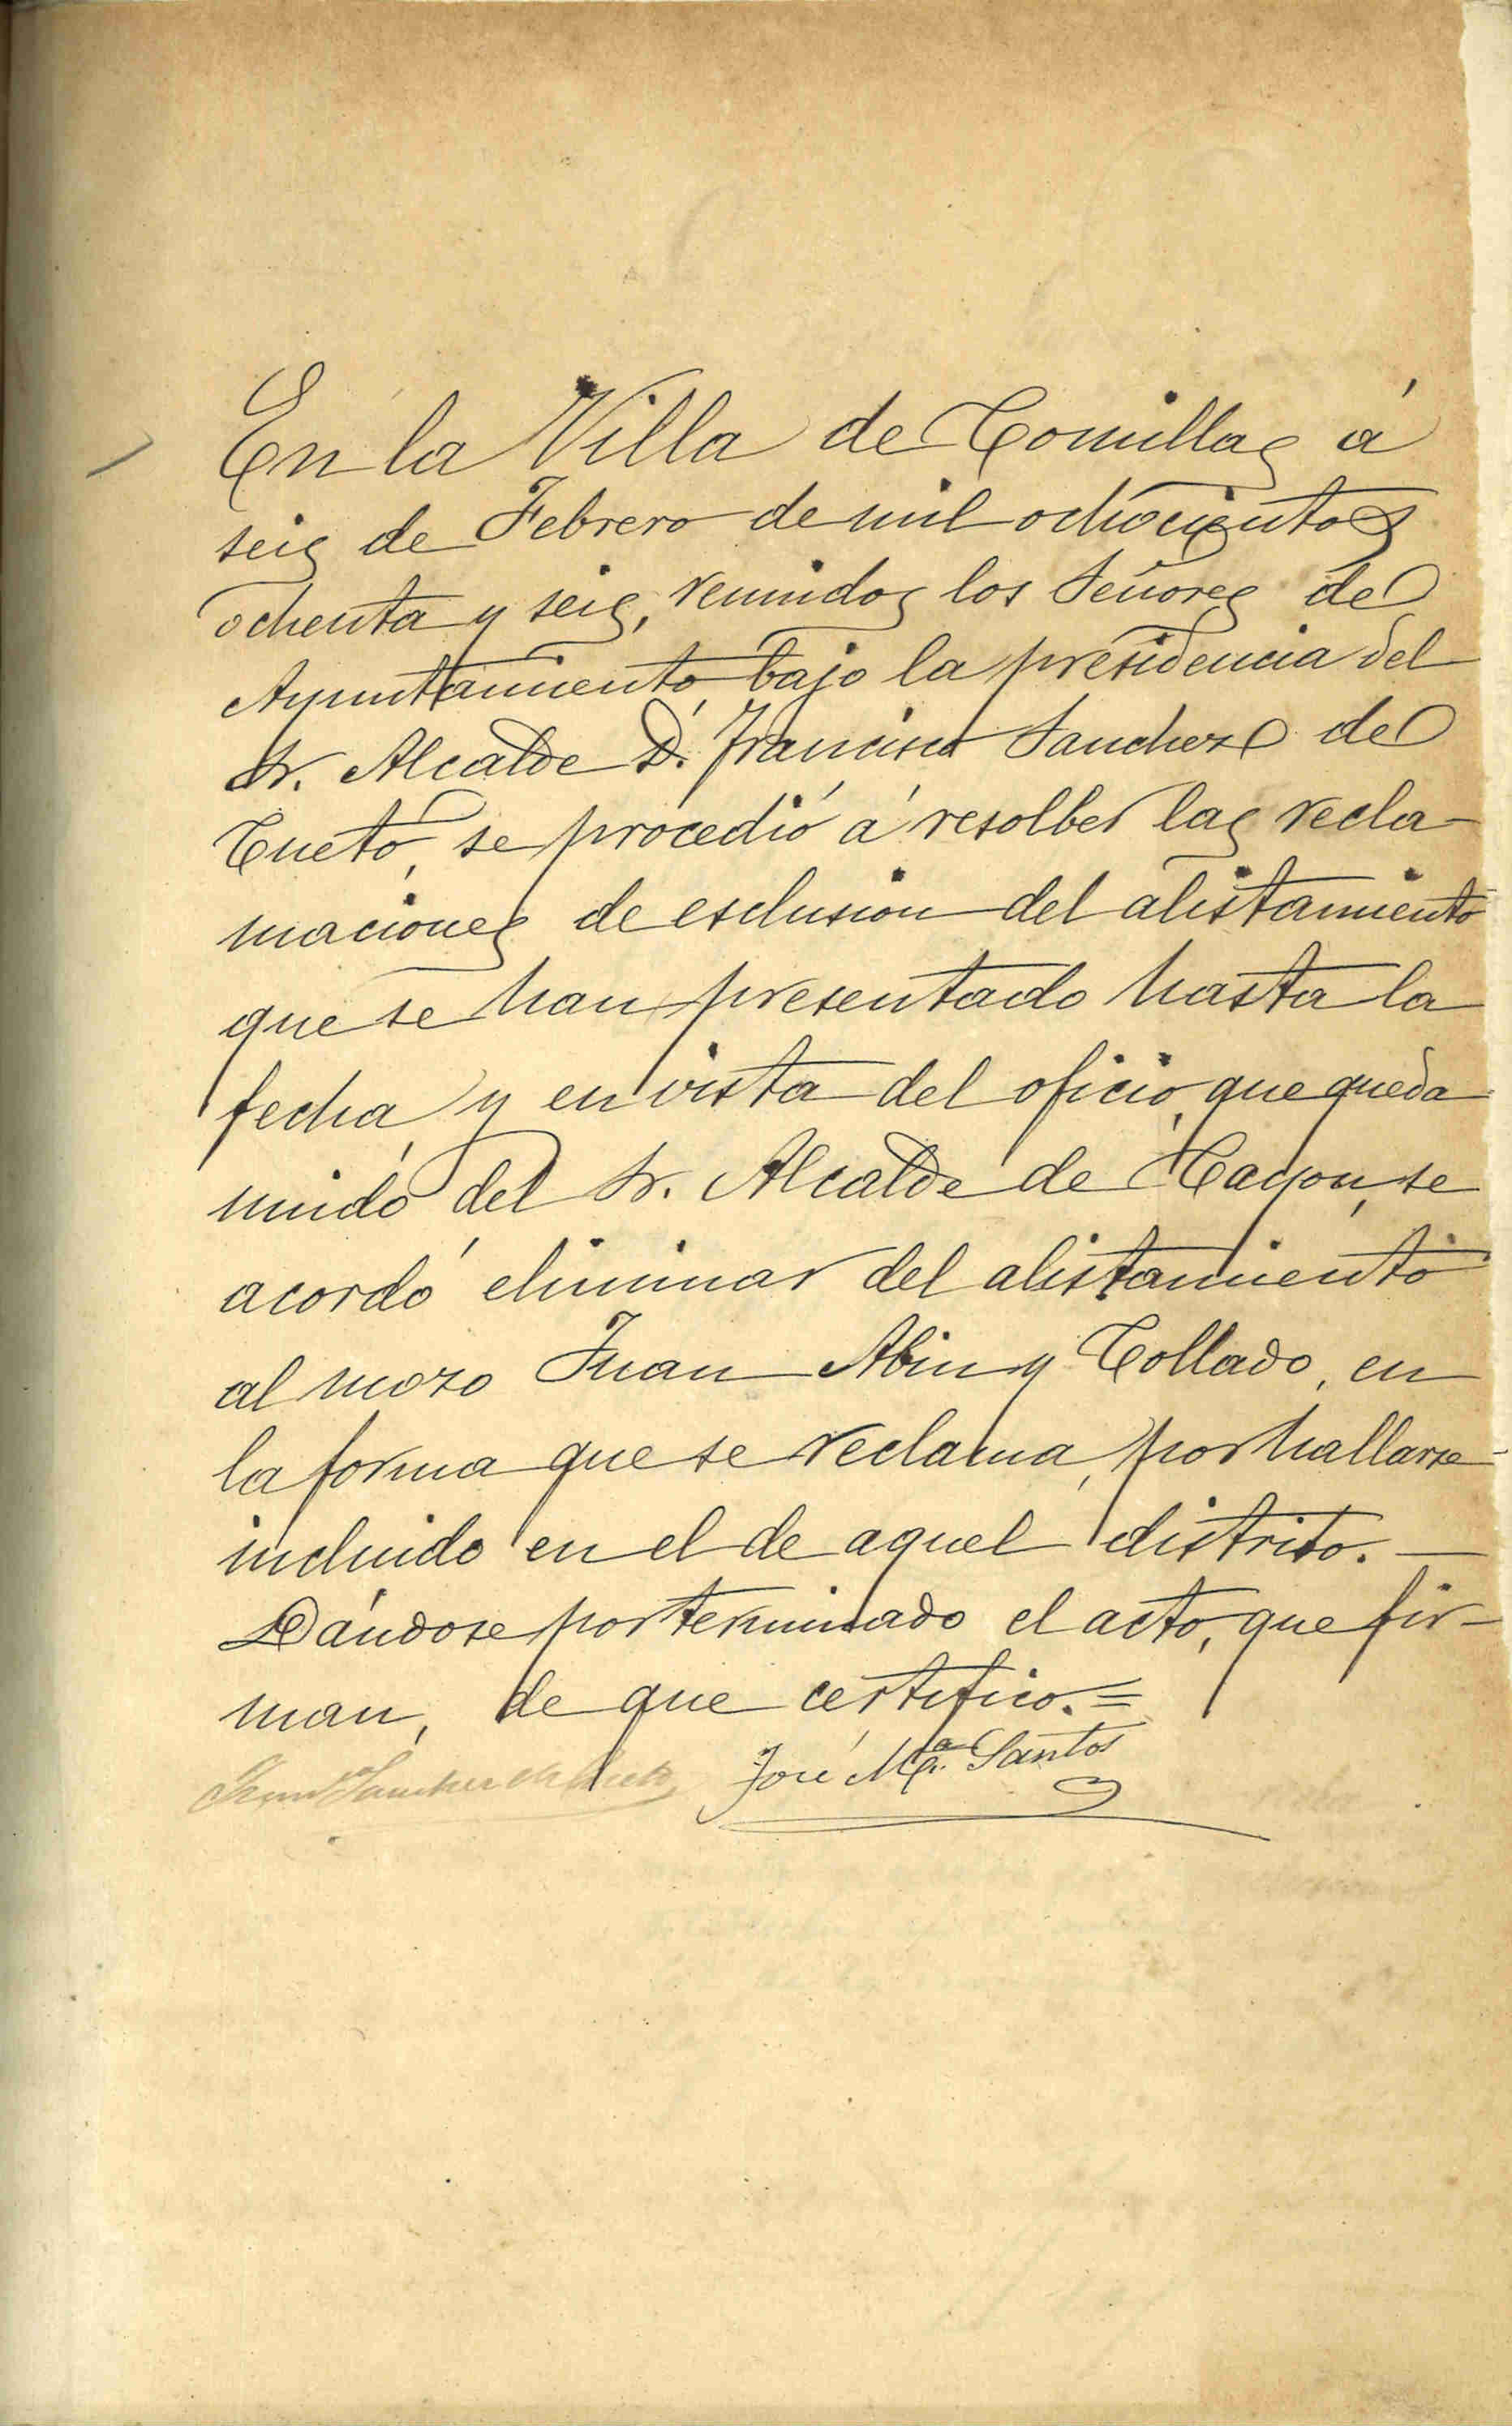 En la Villa de Comillas á
seis de Febrero de mil ochocientos
ochenta y seis, reunidos los Señores de
Ayuntamiento, bajo la presidencia del
Sr. Alcalde D. Francisco Sanchez de
Cueto, se procedió á resolber las recla-
maciones de esclusion del alistamiento
que se han presentado hasta la
fecha, y en vista del oficio, que queda
unido del Sr. Alcalde de Cayon, se
acordó eliminar del alistamiento
al mozo Juan Abin y Collado, en
la forma que se reclama, por hallarse
incluido en el de aquel distrito. —
Dándose por terminado el acto, que fir-
man, de que certifico. =
Sanchez de Cueto José Ma. Santos